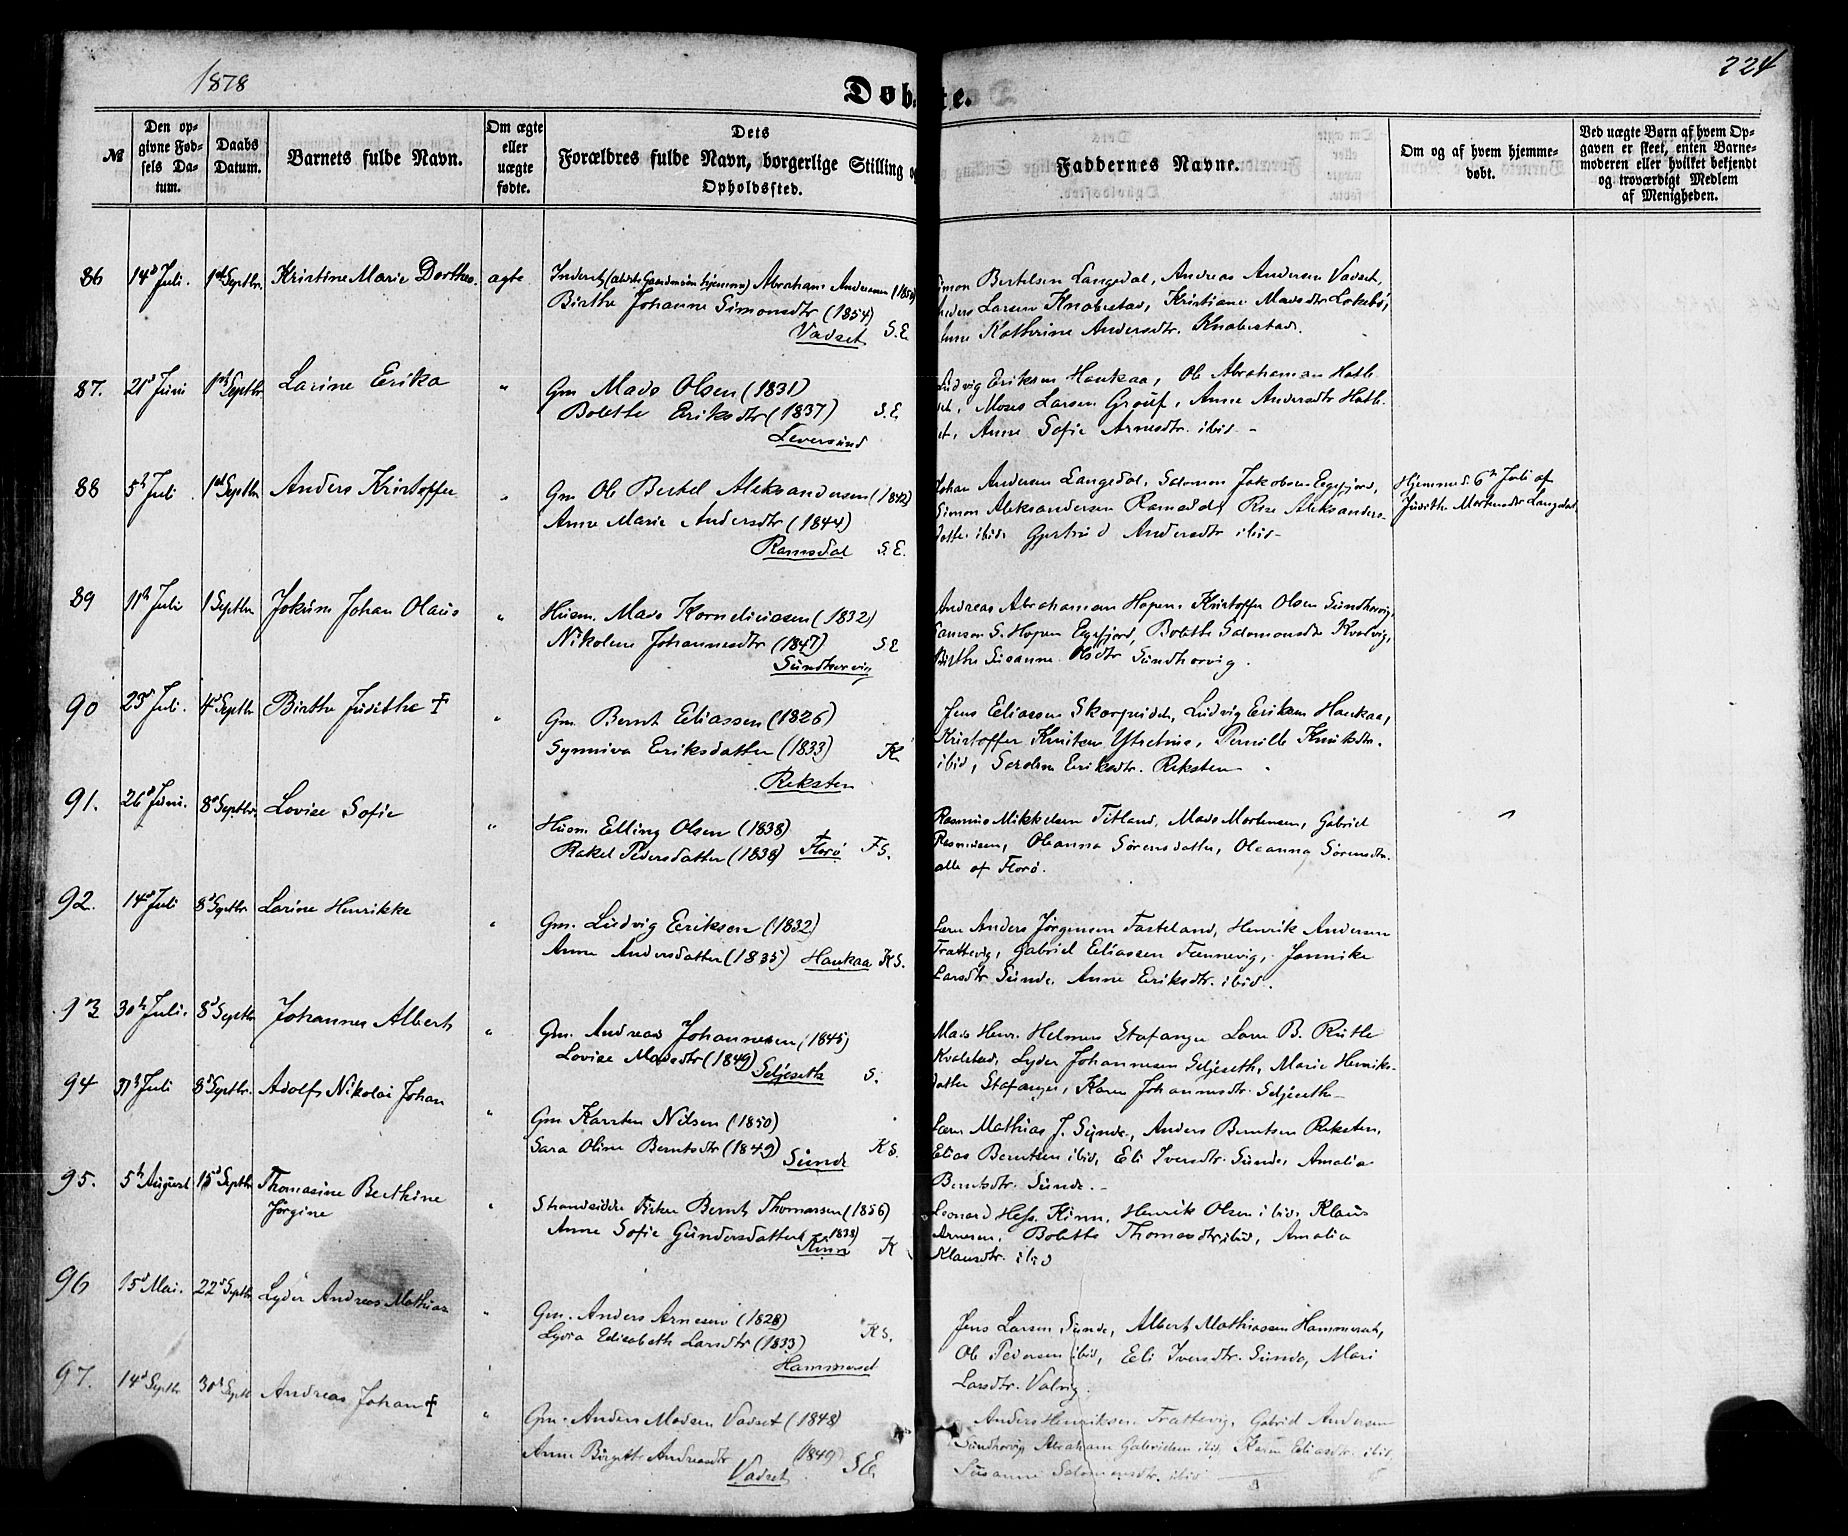 1878
224
Døbte.
№
Den opgivne Fødsels Datum.
Daabs Datum.
Barnets fulde Navn.
Om ægte eller uægte fødte.
Dets Forældres fulde Navn, borgerlige Stilling og Opholdssted.
Faddernes Navne.
Om og af hvem hjemmedøbt.
Ved uægte Børn af hvem Opgaven er skeet, enten Barnemoderen eller hvilket bekjendt og troværdigt Medlem af Menigheden.
86 14d Juli. 1st Septbr. Kristine Marie Dorthea ægte
Abraham Andersen
Birthe Johanne Simonsdtr (1854)
Vadset S.E.
Simon Bertelsen Langedal, Andreas Andersen Vadset,
Anders Larsen Knabestad, Kristiane Madsdtr Løkebø,
Anne Kathrine Andersdtr. Knabestad.
87. 21d Juni 1st Septbr Larine Erika "
Gm Mads Olsen (1831)
Bolethe Eriksdtr (1837) S.E.
Leversund
Ludvig Eriksen Haukaa, Ole Abrahamsen Hatle-
set, Moses Larsen Grøuf, Anne Andersdtr Hatle-
set, Anne Sofie Arnesdtr. ibid -
88 5h Juli 1st Septbr Anders Kristoffer "
Gm Ole Bertel Aleksandersen (1842)
Anne Marie Andersdtr (1844)
Ramsdal S.E.
Johan Andersen Langedal, Salomon Jakobsen Eggefjord,
Simon Aleksandersen Ramsdal, Aleksanders-
datter ibid. Gjertrud Andersdtr ibid-
Hjemmed. 6h Juli af
Judithe Mortensdtr Langedal
89 11h Juli 1 Septbr Jokum Johan Olaus "
Husm. Mads Korneliussen (1832)
Nikoline Johannesdtr (1847) S.E
Sundhorvig
Andreas Abrahamsen Hopen, Kristoffer Olsen Sundhorvig,
Samson S. Hopen Eggefjord, Bolethe Salomonsdtr Kvalvig,
Birthe Susanne Olsdtr Sundhorvig.
90 23d Juli. 4d Septbr Birthe Judithe † "
Gm Bernt Eliassen (1826)
Synniva Eriksdatter (1833) K.
Reksten
Jens Eliassen Skorpeidet, Ludvig Eriksen Haukaa,
Kristoffer Knutsen Ytrehus, Pernille Knutsdtr.
ibid, Serdine Eriksdtr. Reksten
91. 26d Juni. 8d Septbr. Lovise Sofie "
Husm. Elling Olsen (1838)
Rakel Pedersdatter (1838) Florø F.S.
Rasmus Mikkelsen Titland, Mads Mortensen, Gabriel
Rasmussen, Oleanna Sørensdatter, Oleanna Sørensdtr.
alle af Florø.
92. 14d Juli 8d Septbr. Larine Henrikke "
Gm. Ludvig Eriksen (1832)
Anne Andersdatter (1835) Haukaa K.S.
Lærer Anders Jørgensen Fasteland, Henrik Andersen
Trattevig, Gabriel Eliassen Fannevig, Jannike
Larsdtr. Sunde, Anne Eriksdtr. ibid.
93 30h Juli. 8d Septbr Johannes Albert "
Gm. Andreas Johannesen (1845)
Lovise Madsdtr (1849)
Seljeseth S.
Mads Henr. Helmers Stafanger Lars B. Rutle
Kvalstad, Lyder Johannesen Seljeseth, Marie Henriks-
datter Stafanger, Karen Johannesdtr. Seljeseth-
94 31h Juli 8d Septbr. Adolf Nikolai Johan "
Gm Karsten Nilsen (1850)
Sara Oline Berntsdtr (1849) Sunde K.S.
Lærer Mathias J. Sunde, Anders Berntsen Reksten,
Elias Berntsen ibid, Eli Iversdtr. Sunde, Amalia
Berntsdtr. Sunde. -
95. 5h August 15d Septbr Thomasine Berthine
Jørgine "
Strandsidder Fisker Bernt Thomassen (1856)
Anne Sofie Gundersdatter (1838)
Kinn K
Leonard Hess Kinn, Henrik Olsen ibid, Klaus
Arnesen, Bolette Thomasdtr ibid, Amalia
Klausdtr. ibid
96 15d Mai. 22d Septbr Lyder Andreas Mathias "
Gm. Anders Arnesen (1828)
Lydia Elisabeth Larsdtr (1833) K.S.
Hammerset
Jens Larsen Sunde, Albert Mathiassen Hammerset,
Ole Pedersen ibid, Eli Iversdtr. Sunde, Mari
Larsdtr. Valvig.
97. 14d Septbr 30d Septb Andreas Johan † "
Gm. Anders Madsen Vadset (1848)
Anne Birgitte Andreasdtr (1849) S.E.
Vadset
Anders Henriksen Trattevig, Gabriel Andersen
Sundhorvig Abraham Gabrielsen ibid, Karen Eliasdtr. ibid,
Susanne Salomonsdtr. ibid